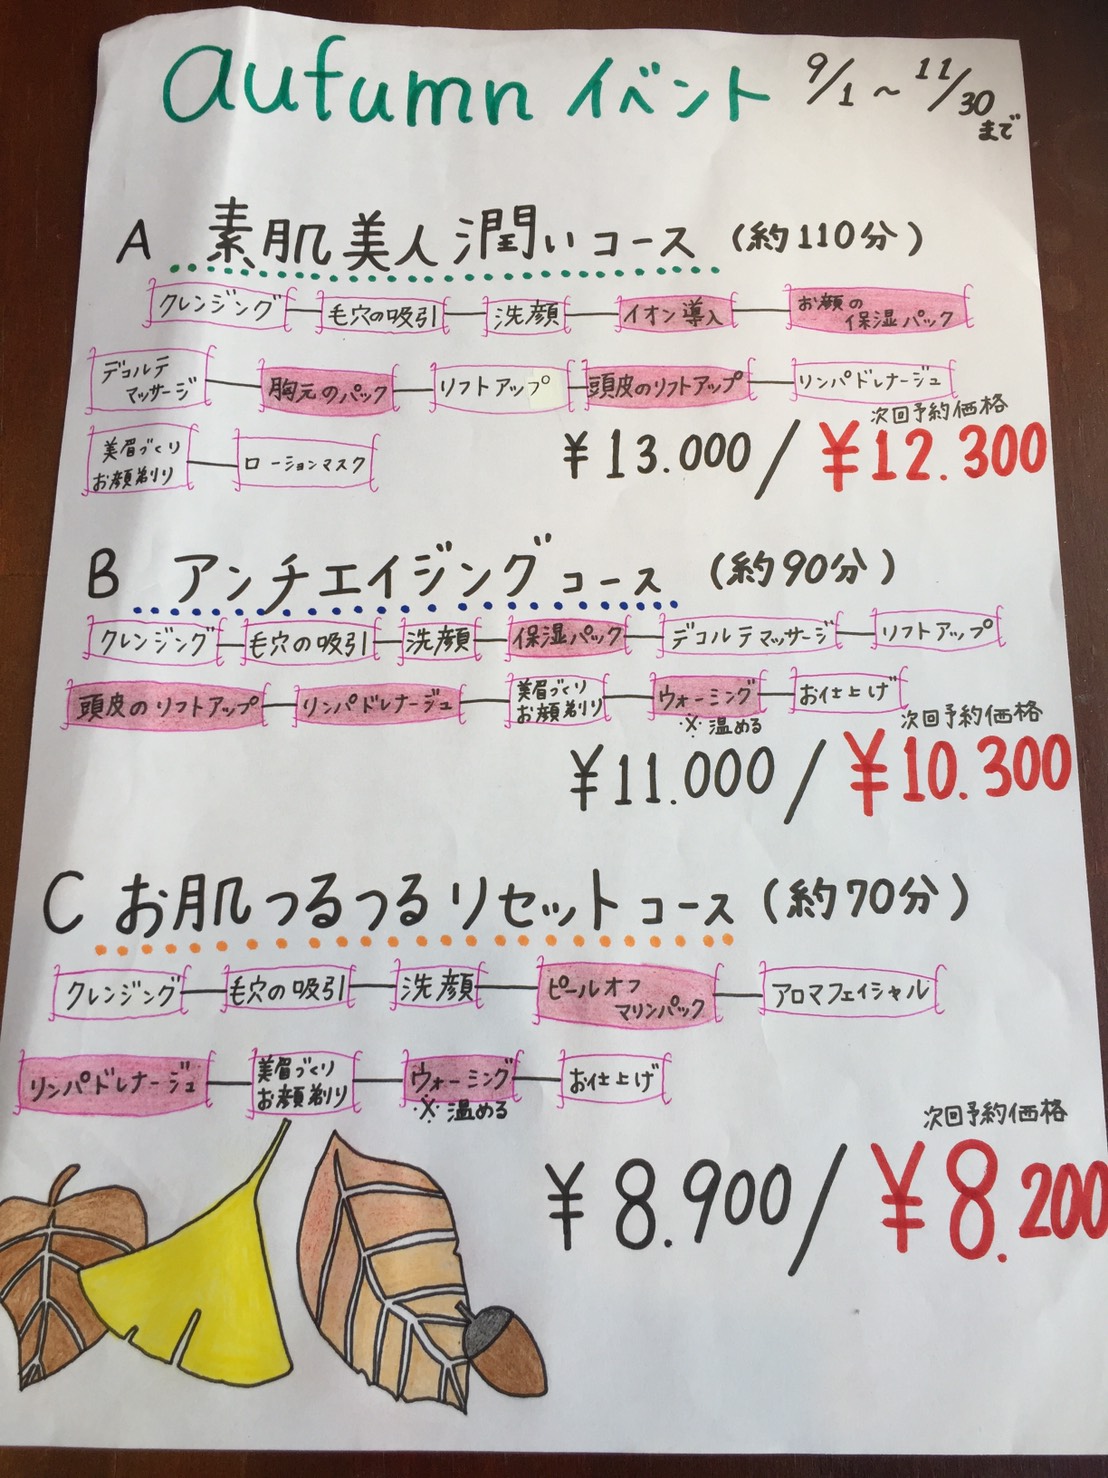 autumn イベント 9/1 ～ 11/30 まで
A 素肌美人潤いコース (約110分)
クレンジング 毛穴の吸引 洗顔 イオン導入 お顔の保湿パック
デコルテマッサージ 胸元のパック リフトアップ 頭皮のリフトアップ リンパドレナージュ
美眉づくり お顔剃り ローションマスク
次回予約価格
¥13.000 / ¥12.300
B アンチエイジングコース (約90分)
クレンジング 毛穴の吸引 洗顔 保湿パック デコルテマッサージ リフトアップ
頭皮のリフトアップ リンパドレナージュ 美眉づくり お顔剃り ウォーミング お仕上げ
※温める
次回予約価格
¥11.000 / ¥10.300
C お肌つるつるリセットコース (約70分)
クレンジング 毛穴の吸引 洗顔 ピールオフマリンパック アロマフェイシャル
リンパドレナージュ 美眉づくり お顔剃り ウォーミング お仕上げ
※温める
次回予約価格
¥8.900 / ¥8.200